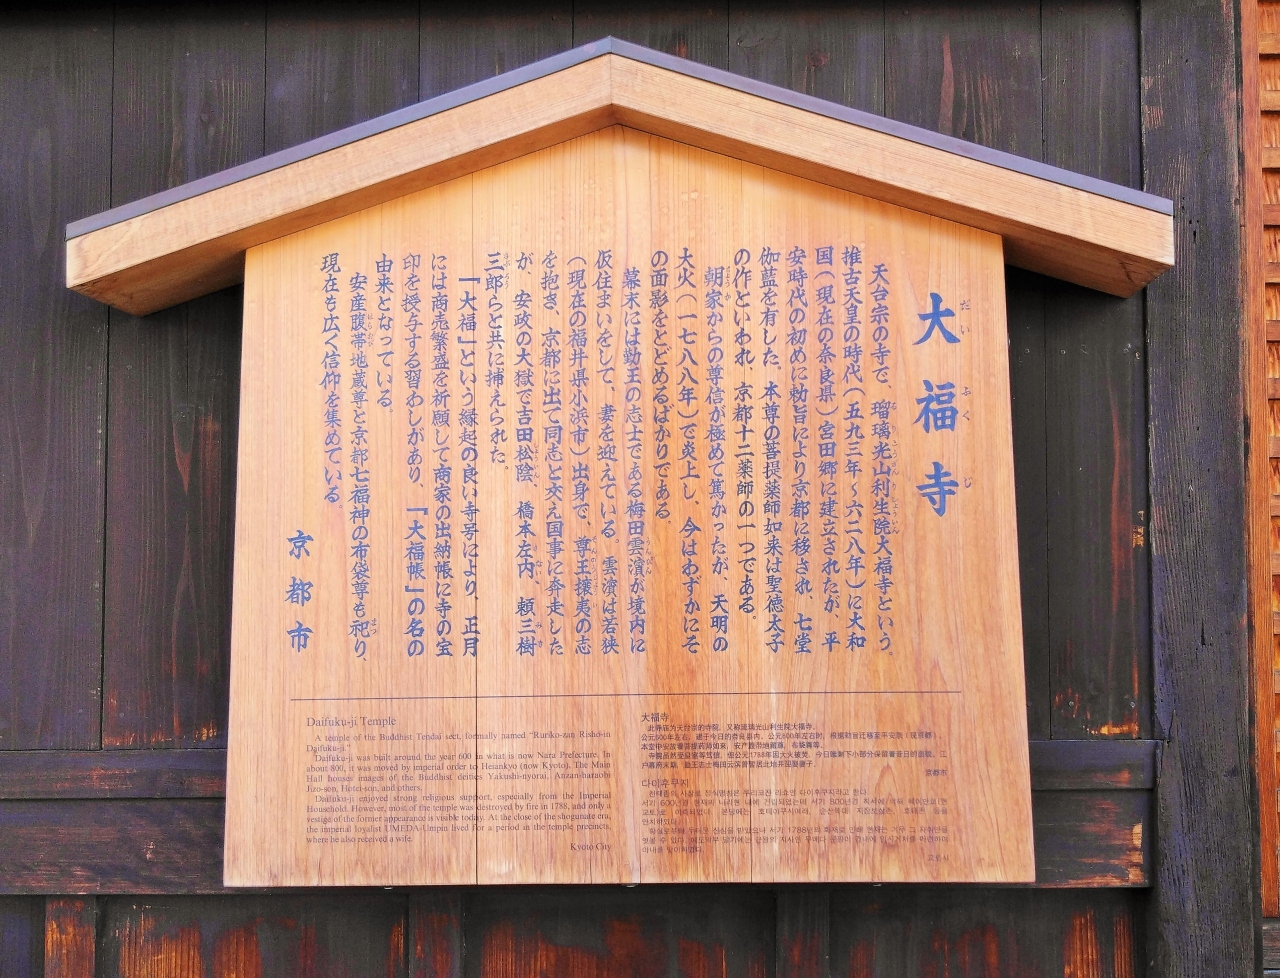 大福寺
天台宗の寺で、瑠璃光山利生院大福寺という。
推古天皇の時代（五九三年～六二八年）に大和
国（現在の奈良県）宮田郷に建立されたが、平
安時代の初めに勅旨により京都に移され、七堂
伽藍を有した。本尊の菩提薬師如来は聖徳太子
の作といわれ、京都十二薬師の一つである。
朝家からの尊信が極めて篤かったが、天明の
大火（一七八八年）で炎上し、今はわずかにそ
の面影をとどめるばかりである。
幕末には勤王の志士である梅田雲濱が境内に
仮住まいをして、妻を迎えている。雲濱は若狭
（現在の福井県小浜市）出身で、尊王攘夷の志
を抱き、京都に出て同志と交え国事に奔走した
が、安政の大獄で吉田松陰、橋本左内、頼三樹
三郎らと共に捕えられた。
「大福」という縁起の良い寺号により、正月
には商売繁盛を祈願して商家の出納帳に寺の宝
印を授与する習わしがあり、「大福帳」の名の
由来となっている。
安産腹帯地蔵尊と京都七福神の布袋尊も祀り、
現在も広く信仰を集めている。
京都市
Daifuku-ji Temple
A temple of the Buddhist Tendai sect, formally named "Ruriko-zan Risho-in
Daifuku-ji."
Daifuku-ji was built around the year 600 in what is now Nara Prefecture. In
about 800, it was moved by imperial order to Heiankyo (now Kyoto). The Main
Hall houses images of the Buddhist deities Yakushi-nyorai, Anzan-haraobi
Jizo-son, Hotei-son, and others.
Daifuku-ji enjoyed strong religious support, especially from the Imperial
Household. However, most of the temple was destroyed by fire in 1788, and only a
vestige of the former appearance is visible today. At the close of the shogunate era,
the imperial loyalist UMEDA-Umpin lived for a period in the temple precincts,
where he also received a wife.
Kyoto City
大福寺
此寺庙为天台宗的寺院，又称琉璃光山利生院大福寺。
京都市
다이후쿠지
교토시